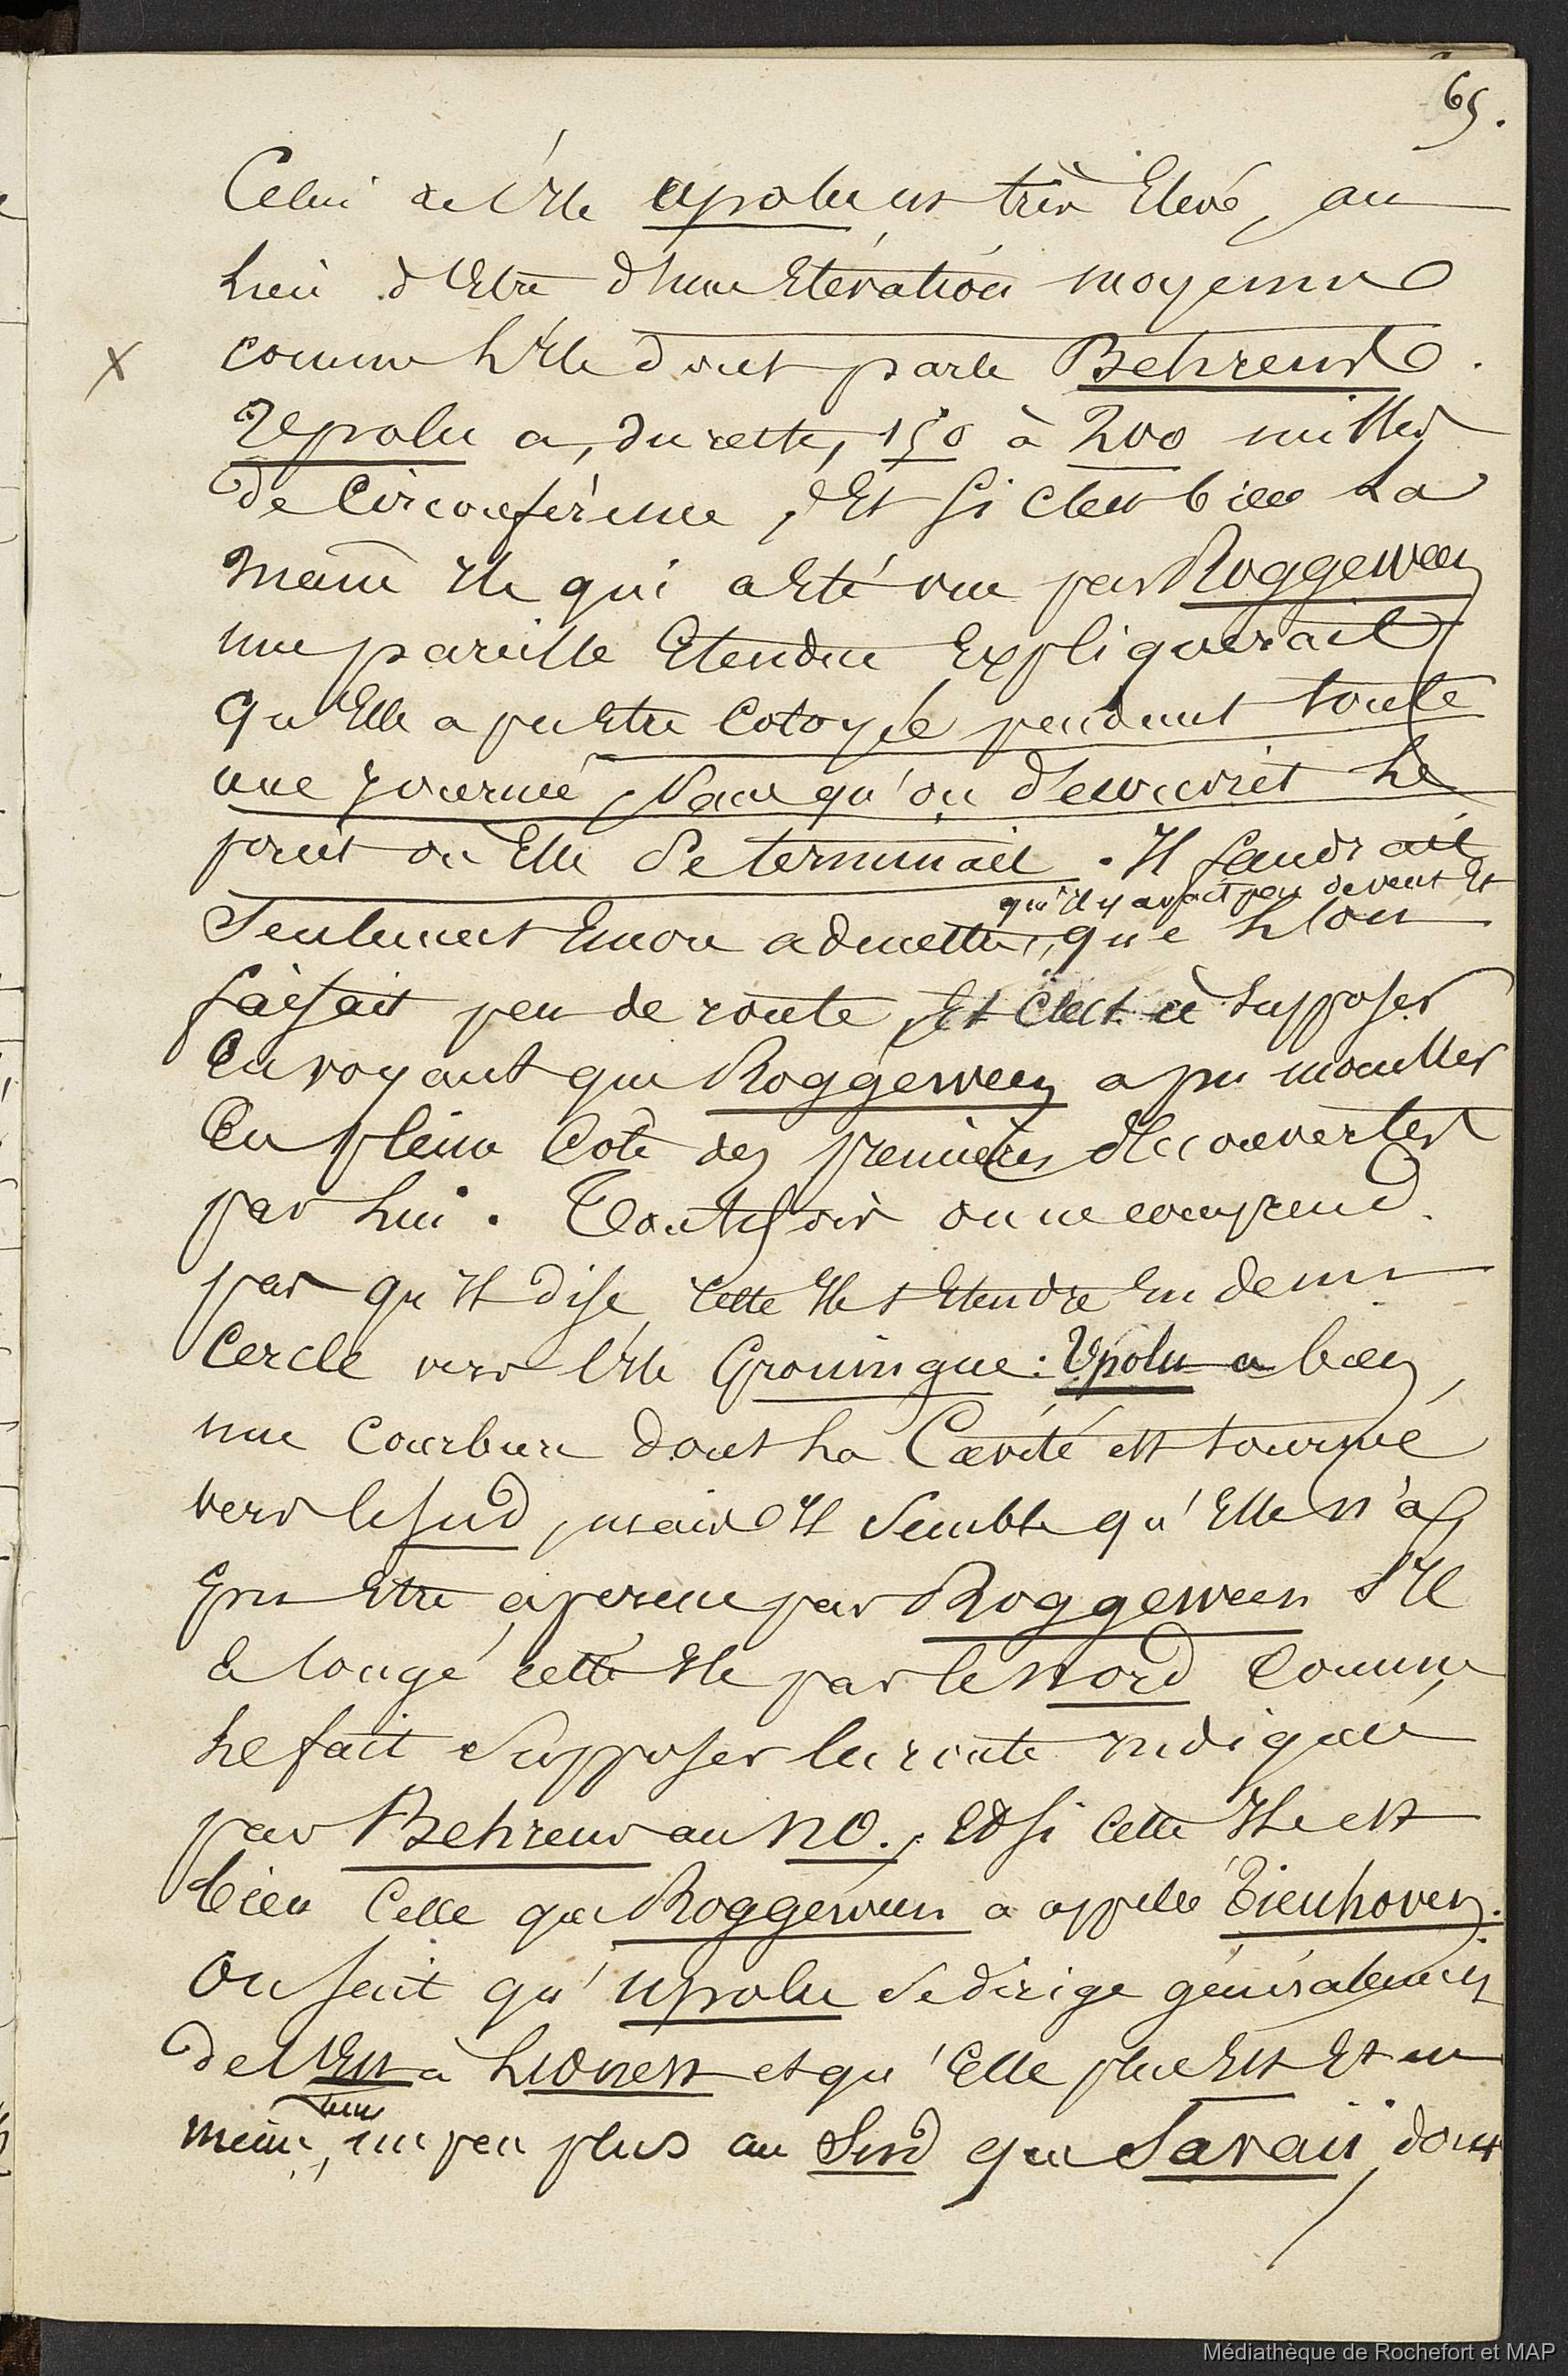 65.
Celui de l'Ile Upolu est très Elevé, au
lieu d'Etre d'une Elévation moyenne
comme l'Ile dont parle Behrens.
X
Upolu a, du reste, 150 à 200 milles
de Circonférence, Et si c'est bien la
même Ile qui a Eté vue par Roggeween
une pareille Etendue Expliquerait
qu'Elle a pu Etre Cotoyée pendant toute
une journée, sans qu'on découvrît le
point où Elle se terminait. Il faudrait
qu'il y avait peu de vent Et
seulement Encore admettre, que l'on
faisait peu de route, Et c'est à supposer
En voyant que Roggeween a pu mouiller
En pleine Cote des premières découvertes
par lui. Toutefois on ne comprend
pas qu'Il dise cette Ile s'Etendre En demi
Cercle vers l'Ile Groningue: Upolu a bien
une Courbure dont la Cavité est tournée
vers le sud, mais Il semble qu'Elle n'a
pu Etre aperçue par Roggeween s'Il
a longé cette Ile par le nord Comme
le fait supposer la route indiquée
par Behrens au NO., Et si cette Ile est
bien Celle que Roggeween a appelée Tienhoven.
On sait qu'Upolu se dirige généralement
de l'Est à l'Ouest et qu'Elle plus Est Et en
même tems, un peu plus au Sud que Savaii, dont
Médiathèque de Rochefort et MAP